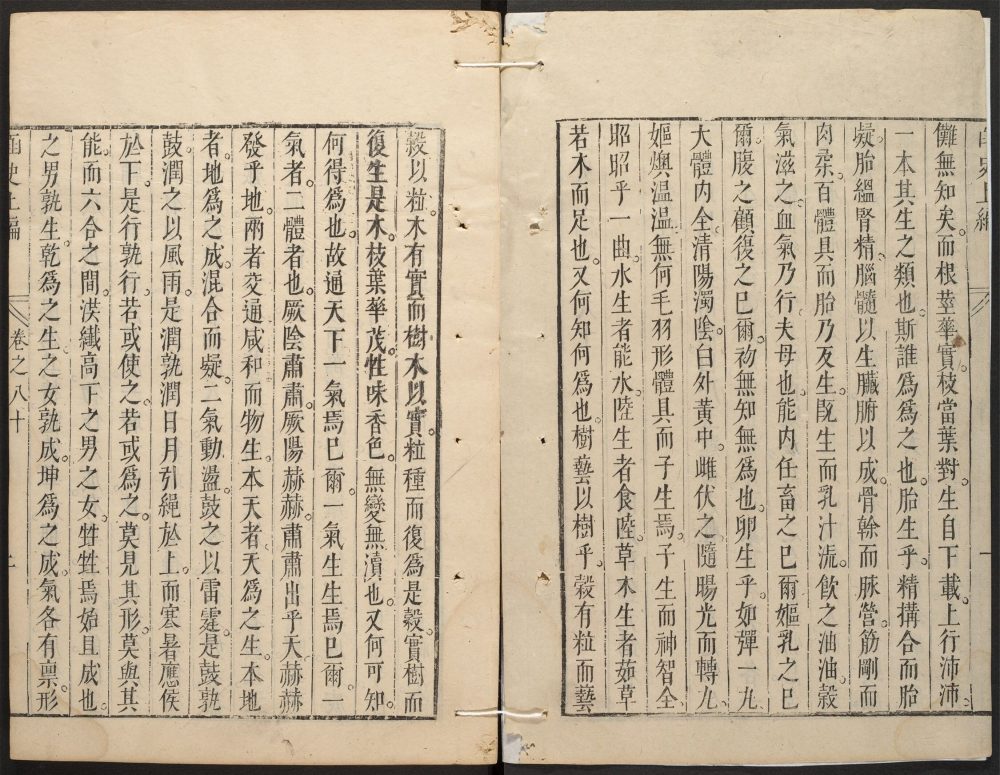 函史上編
儺無知矣而根莖華實枝當葉對生自下載上行沛沛
一本其生之類也斯誰爲爲之也胎生乎精搆合而胎
凝胎緼腎精腦髓以生臟腑以成骨榦而脉營筋剛而
肉柔百體具而胎乃及生旣生而乳汁流飮之油油穀
氣滋之血氣乃行夫母也能內任畜之已爾嫗乳之已
爾廋之顧復之已爾物無知無爲也卵生乎如彈一丸
大體內全清陽濁陰白外黃中雌伏之隨暘光而轉丸
嫗燠温温無何毛羽形體具而子生焉子生而神智全
昭昭乎一曲水生者能水陸生者食陸草木生者茹草
若木而足也又何知何爲也樹藝以樹乎穀有粒而藝
穀以粒木有實而樹木以實粒種而復爲是穀實樹而
復生是木枝葉華茂性味香色無變無瀆也又何可知
何得爲也故通天下一氣焉已爾一氣生生焉已爾一
氣者二體者也厥陰肅肅厥陽赫赫肅肅出乎天赫赫
發乎地兩者交通咸和而物生本天者天爲之生本地
者地爲之成混合而凝二氣動盪鼓之以雷霆是鼓孰
鼓潤之以風雨是潤孰潤日月引繩於上而寒暑應候
於下是行孰行若或使之若或爲之莫見其形莫與其
能而六合之間洪纖高下之男之女甡甡焉始且成也
之男孰生乾爲之生之女孰成坤爲之成氣各有禀形
函史上編
卷之八十